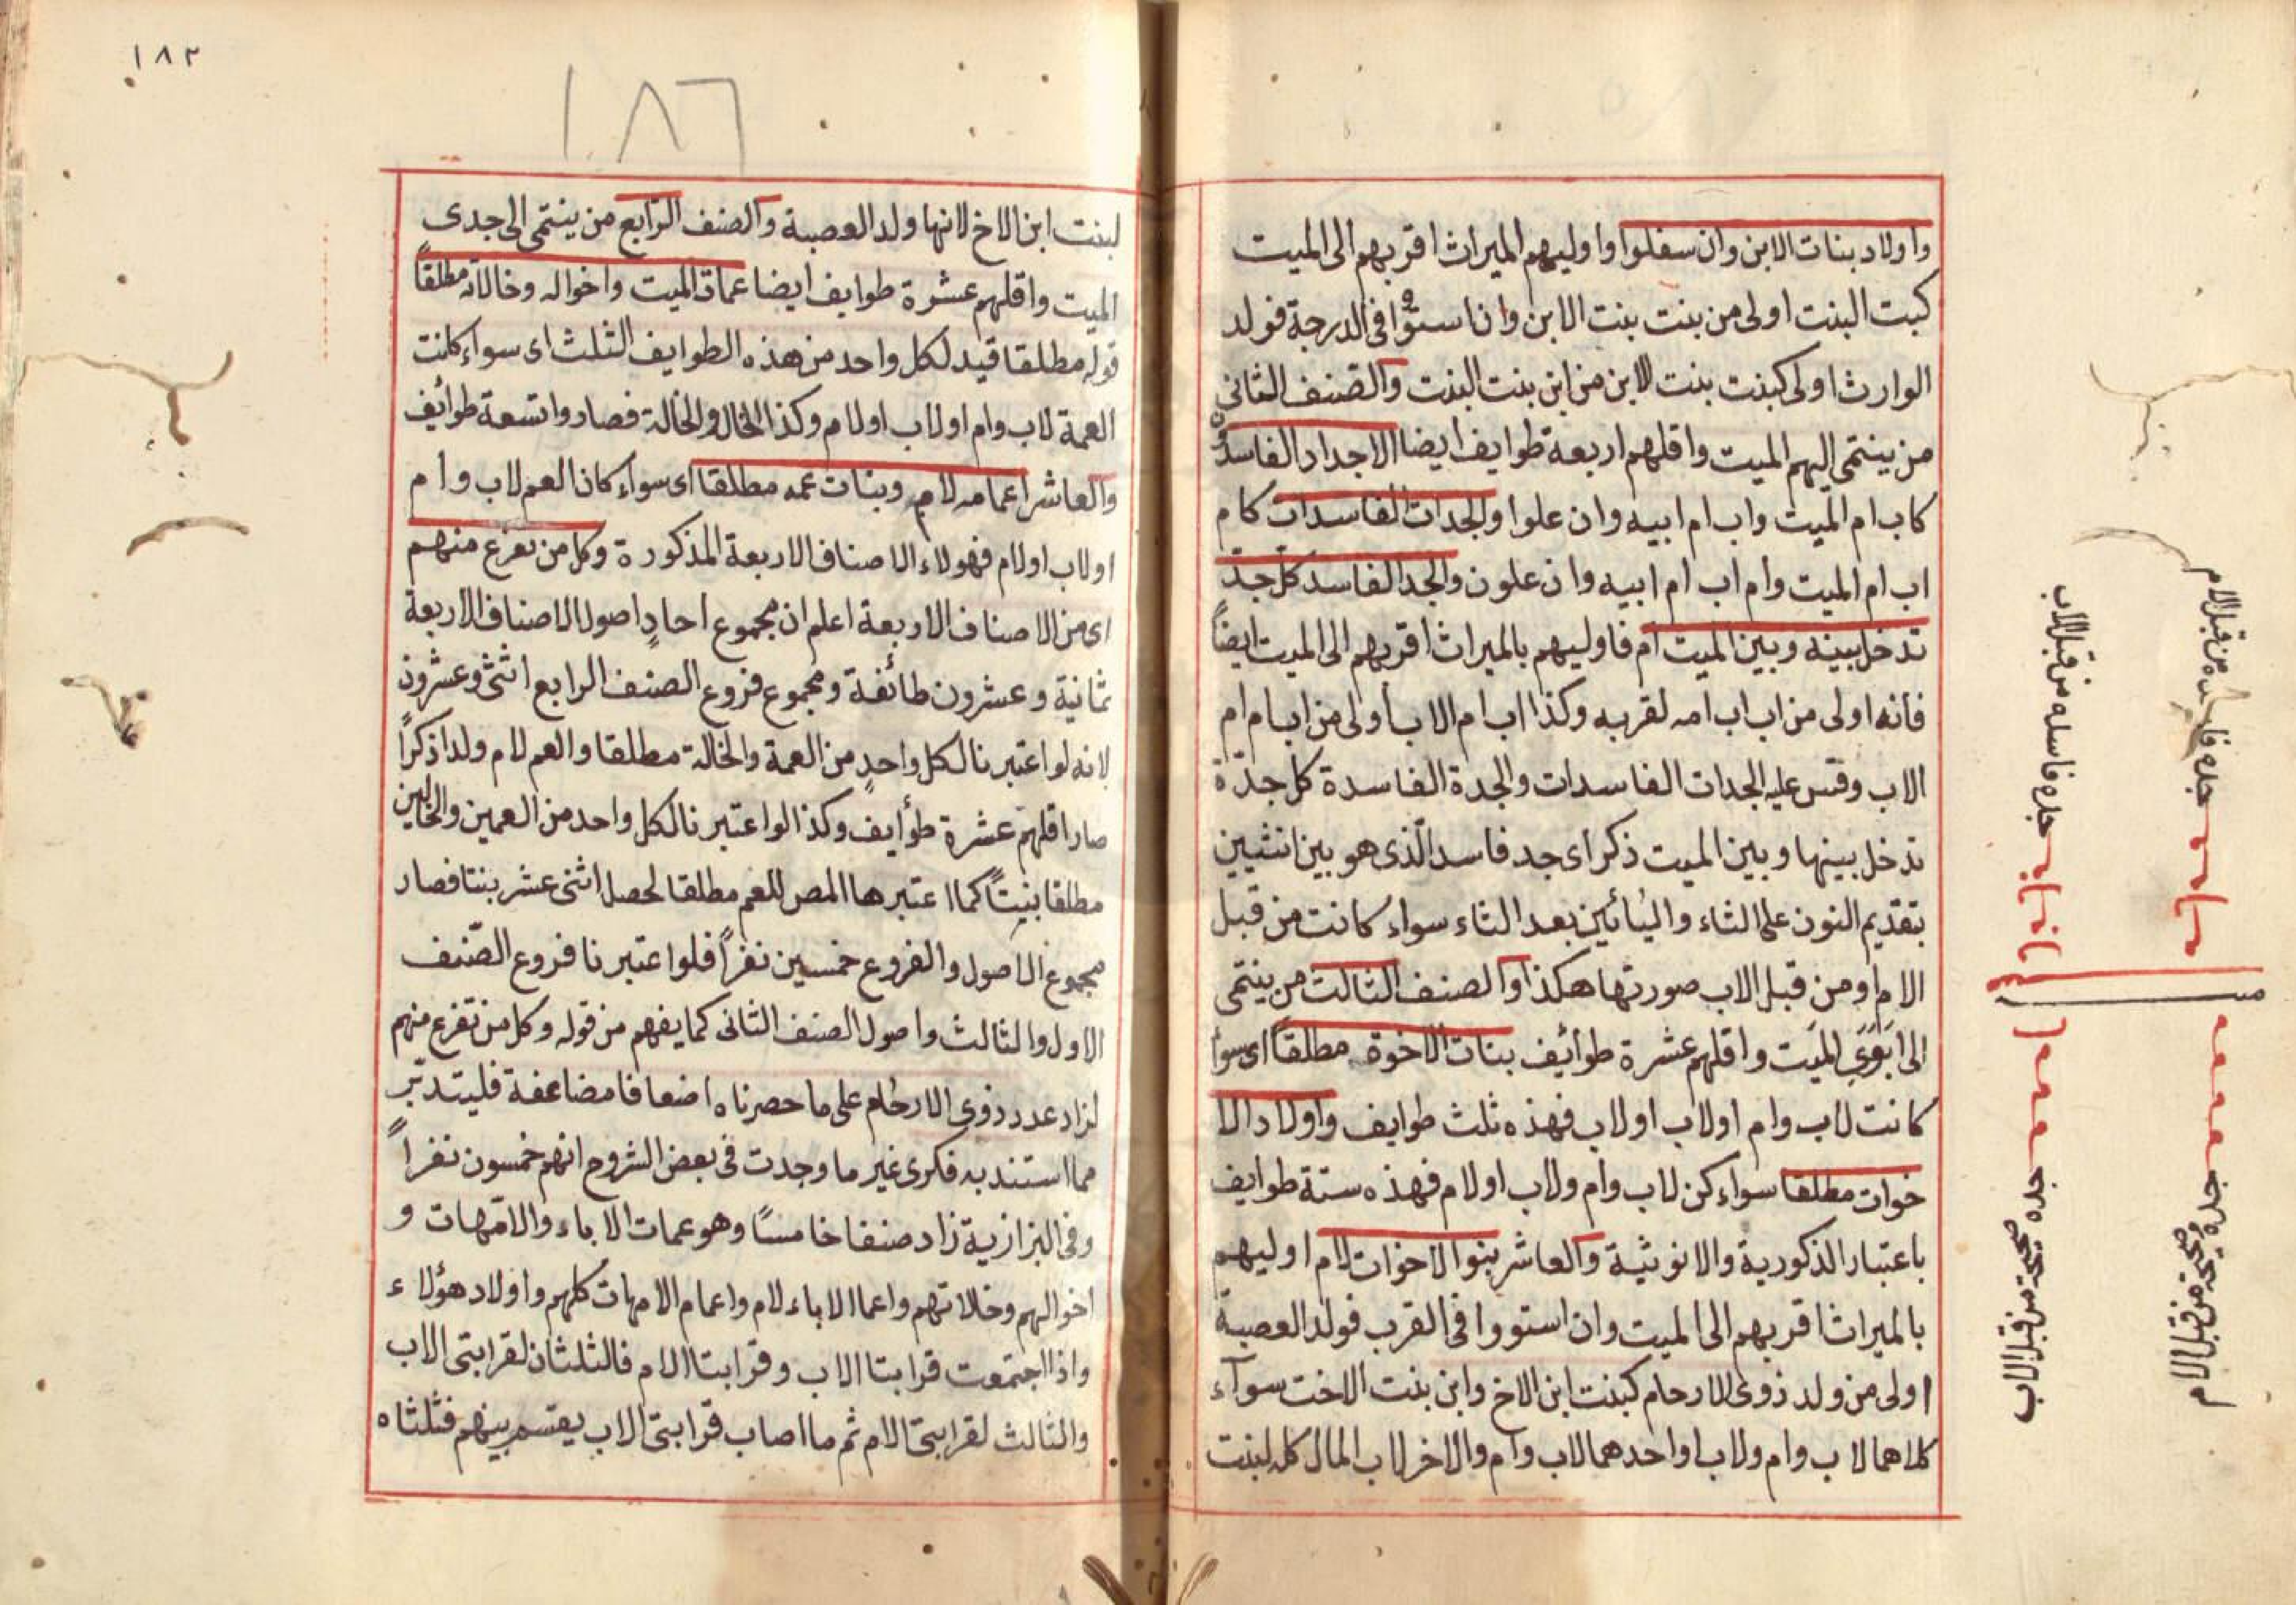 واولاد بنات الابن وان سفلوا واوليهم الميراث اقربهم الى الميت
كبت البنت اولى من بنت بنت الابن وان استووا فى الدرجة فولد
الوارث اولى كبنت بنت الابن من ابن بنت البنت والصنف الثانى
من ينتمى اليهم الميت واقلهم اربعة طوايف ايضا الاجداد الفاسدة
كاب ام الميت واب ام ابيه وان علوا والجدات الفاسدات كام
اب ام الميت وام اب ام ابيه وان علون والجد الفاسد كل جد
تدخل بينه وبين الميت ام فاوليهم بالميراث اقربهم الى الميت ايضاً
فانه اولى من اب اب امه لقربه وكذا اب ام الاب اولى من اب ام ام
الاب وقس عليه الجدات الفاسدات والجدة الفاسدة كل جدّة
تدخل بينها وبين الميت ذكر اى جد فاسد الّذى هو بين انثيين
بتقديم النون على الثاء واليائين بعد الثاء سواء كانت من قبل
الام او من قبل الاب صورتها هكذا والصنف الثالث من ينتمى
الى ابَوَىِ الميّت واقلهم عشرة طوائف بنات الاخوة مطلقاً اى سوا
كانت لاب وام اولاب اولاب فهذه ثلث طوايف واولاد الا
خوات مطلقا سواء كن لاب وام ولاب اولام فهذه ستة طوايف
باعتبار الذكورية والانوثية والعاشر بنوا الاخوات لام اوليهم
بالميراث اقربهم الى الميت وان استووا فى القرب فولد العصبة
اولى من ولد ذوى الارحام كبنت ابن الاخ وابن بنت الاخت سوآء
كلاهما لاب وام ولاب او احدهما لاب وام والاخر لاب المال كله لبنت
جده فاسده من قبل الام
جده فاسده من قبل الاب
جده صحيحة من قبل الاب
جده صحيحة من قبل الام
١٨٢
١٨٦
لبنت ابن الاخ لانها ولد العصبة والصنف الرّابع من ينتمى الى جدى
الميت واقلهم عشرة طوايف ايضا عمات الميت واخواله وخالاته مطلقاً
قوله مطلقا قيد لكل واحد من هذه الطوايف الثلث اى سواء كانت
العمة لاب وام اولاب اولام وكذا الخال والخالة فصاروا تسعة طوائف
والعاشر اعمامه لام وبنات عمه مطلقا اى سواء كان العم لاب وام
اولاب اولام فهولاء الاصناف الاربعة المذكورة وكل من تفرع منهم
اى من الاصناف الاربعة اعلم ان مجموع احادِ اصول الاصناف الاربعة
ثمانية وعشرون طائفة ومجموع فروع الصنف الرابع اثنى وعشرون
لانه لو اعتبرنا لكل واحدٍ من العمة والخالة مطلقا والعم لام ولدا ذكراً
صار اقلهم عشرة طوأيف وكذا لو اعتبرنا لكل واحد من العمين والخالين
مطلقا بنيتاً كما اعتبرها المص للعم مطلقا لحصل اثنى عشر بنتا فصار
مجموع الاصول والفروع خمسين نفراً فلو اعتبرنا فروع الصّنف
الاول والثالث واصول الصنف الثانى كما يفهم من قوله وكل من تفرع منهم
لزاد عدد ذوى الارحام على ما حصرناه اضعافا مضاعفة فليتدبّر
مما استند به فكرى غير ما وجدت فى بعض الشروح انهم خمسون نفراً
وفى البزازية زاد صنفا خامساً وهو عمات الاباء والامّهات و
اخوالهم وخالاتهم واعما الاباء لام واعمام الامهات كلهم واولاد هؤلاء
واذا اجتمعت قرابتا الاب وقرابتا الام فالثلثان لقرابتى الاب
والثالث لقرابتى الام ثم ما اصاب قرابتى الاب يقتسم بينهم فثلثاه